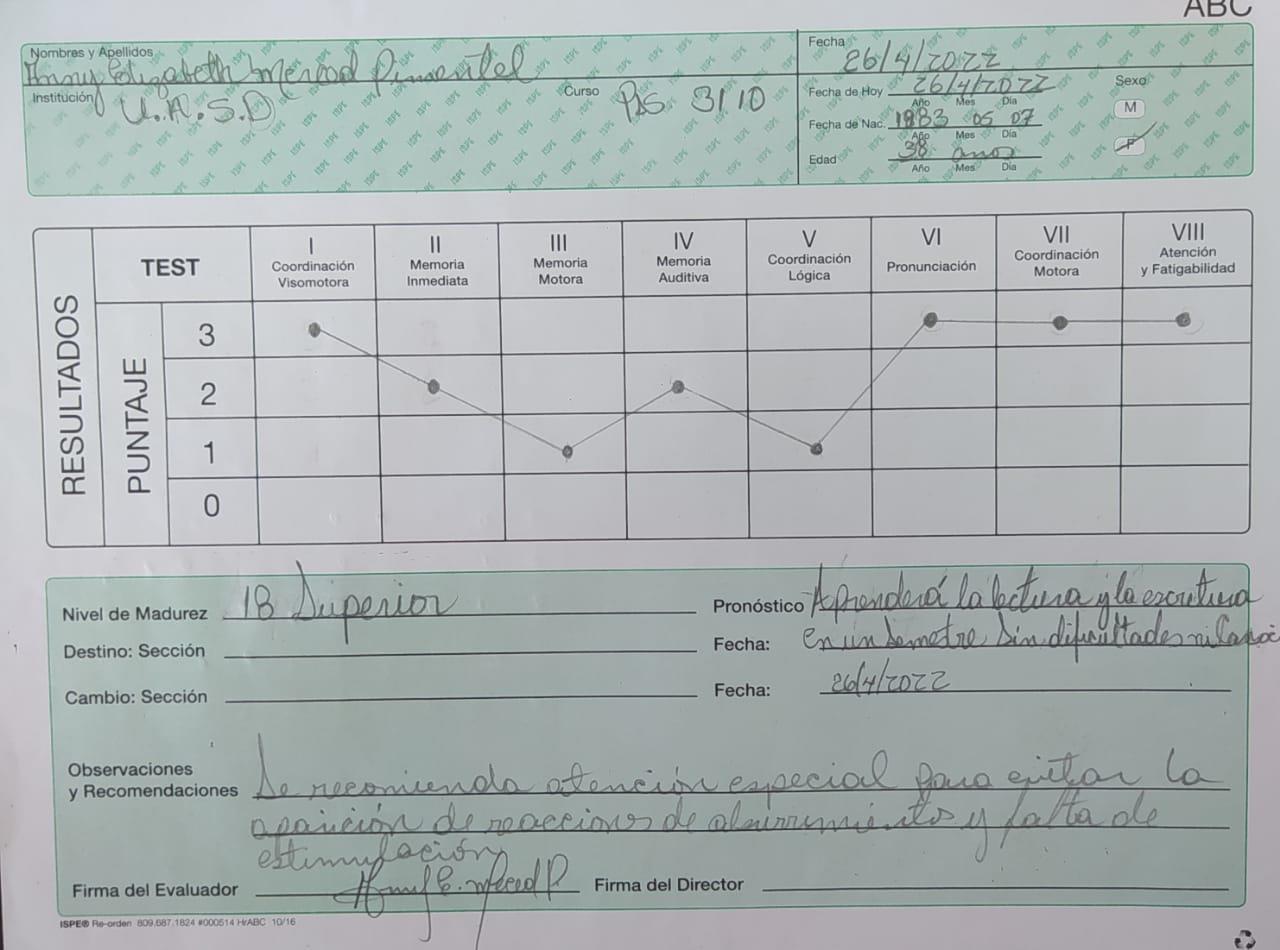 ABC
Nombres y Apellidos
Elizabeth Merced Pimentel
Institución U.A.S.D
Curso PSS 3110
Fecha 26/4/2022
Fecha de Hoy 26/4/2022
Año Mes Día
Fecha de Nac. 1983 05 07
Año Mes Día
Edad 38 años
Año Mes Día
Sexo
M
F
RESULTADOS
PUNTAJE
TEST
I Coordinación Visomotora
II Memoria Inmediata
III Memoria Motora
IV Memoria Auditiva
V Coordinación Lógica
VI Pronunciación
VII Coordinación Motora
VIII Atención y Fatigabilidad
3
2
1
0
Nivel de Madurez 18 Superior
Pronóstico Aprenderá la lectura y la escritura
Destino: Sección
Fecha: en un semetre sin dificultades ni
Cambio: Sección
Fecha: 26/4/2022
Observaciones
y Recomendaciones
Se recomienda atención especial para evitar la
aparición de reacciones de aburrimientos y falta de
estimulación
Firma del Evaluador
Firma del Director
ISPE® Re-orden 809.687.1824 #000514 HrABC 10/16